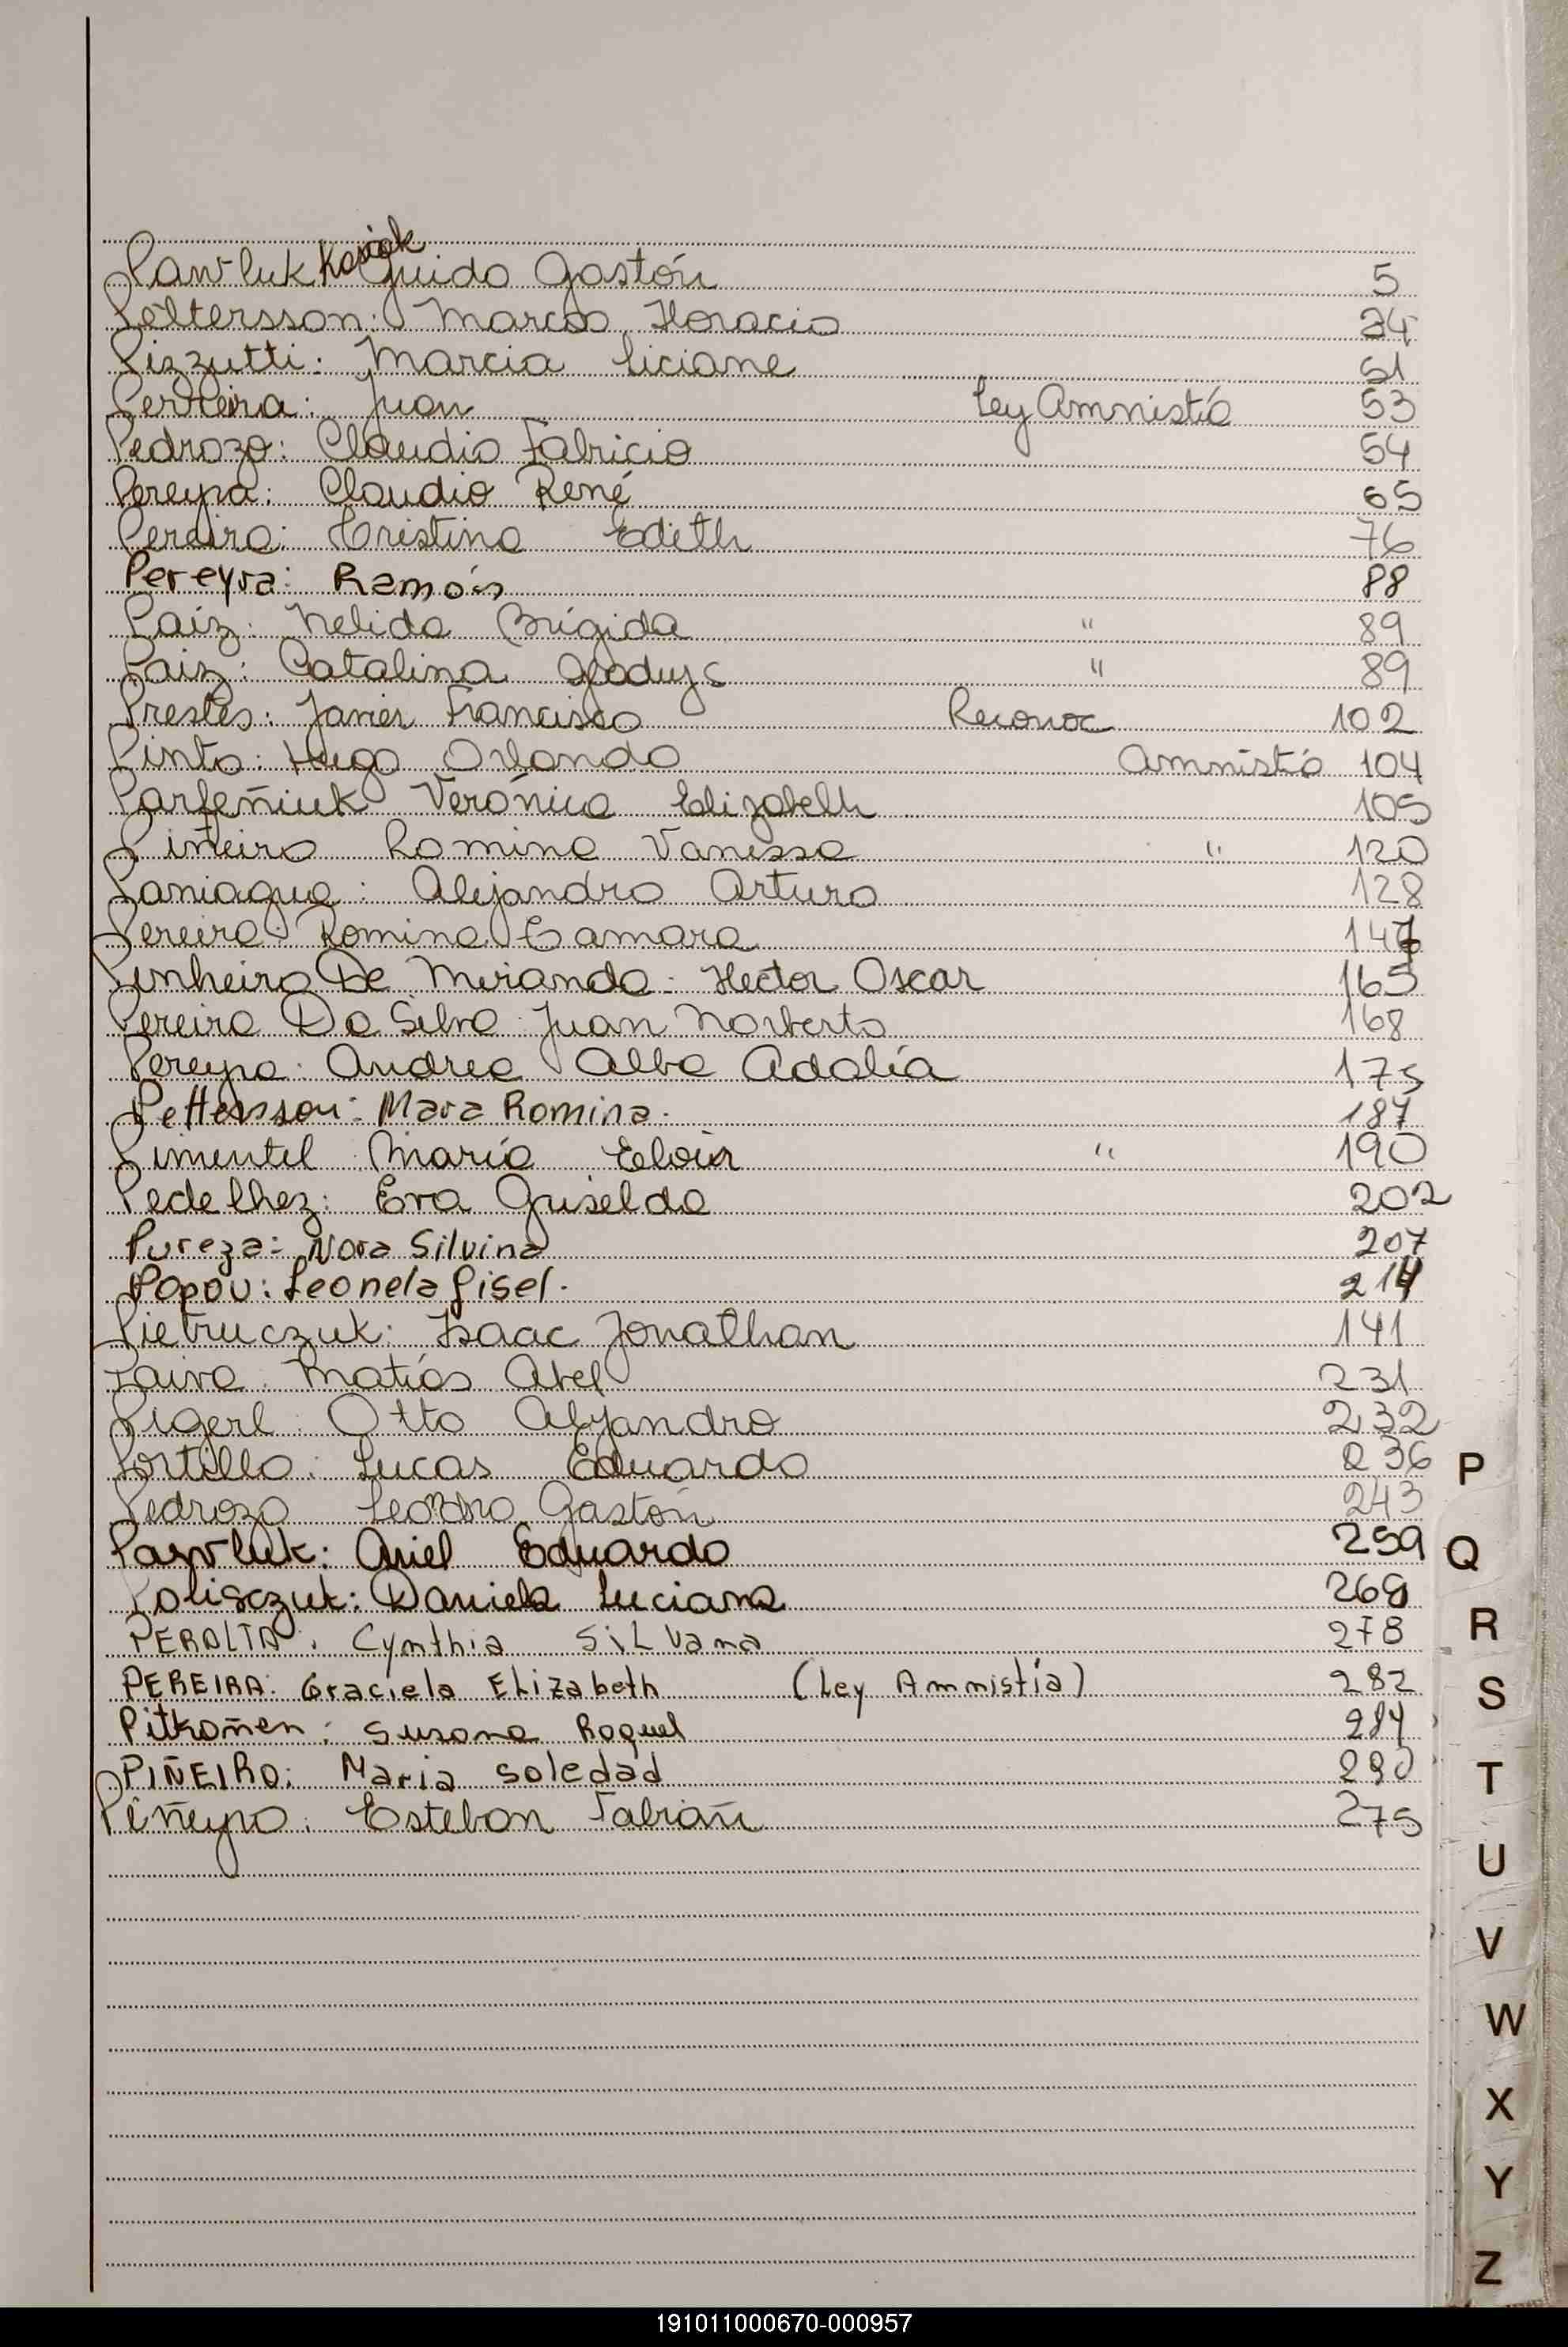 Pawluk Kosiak Guido Gastón 5
Pettersson: Marcos Horacio 34
Pizzutti: Marcia Liciane 51
Perreira: Juan Ley Amnistía 53
Pedrozo: Claudio Fabricio 54
Pereyra: Claudio René 65
Pereira: Cristina Edith 76
Pereyra: Ramón 88
Paiz: Nelida Brígida " 89
Paiz: Catalina Gladys " 89
Prestes: Javier Francisco Reconoc 102
Pinto: Hugo Orlando Amnistía 104
Parfeñiuk Verónica Elizabeth 105
Piñeiro Romina Vanessa " 120
Paniagua: Alejandro Arturo 128
Pereira Romina Tamara
Pinheiro De Miranda: Hector Oscar 165
Pereira Da Silva: Juan Norberto 168
Pereyra: Andrea Alba Adalía 175
Pettersson: Mara Romina. 187
Pimentel María "  190
Pedelhez: Eva Griselda 202
Pureza: Nora Silvina 207
Popov: Leonela Gisel. 214
Pietruczuk: Isaac Jonathan 141
Paiva: Matías Abel 231
Pigerl: Otto Alejandro 232
Portillo: Lucas Eduardo 236
Pedrozo Leandro Gastón 243
Pawluk: Ariel Eduardo 259
Polisczuk: Daniela Luciana 269
PERALTA: Cynthia SiLvana 278
PEREIRA: Graciela ELizabeth (Ley Amnistía) 282
Pitkoñen: Susana Raquel 284
PIÑEIRO: Maria Soledad 290
Piñeyro: Esteban Fabián 275
P
Q
R
S
T
U
V
W
X
Y
Z
191011000670-000957